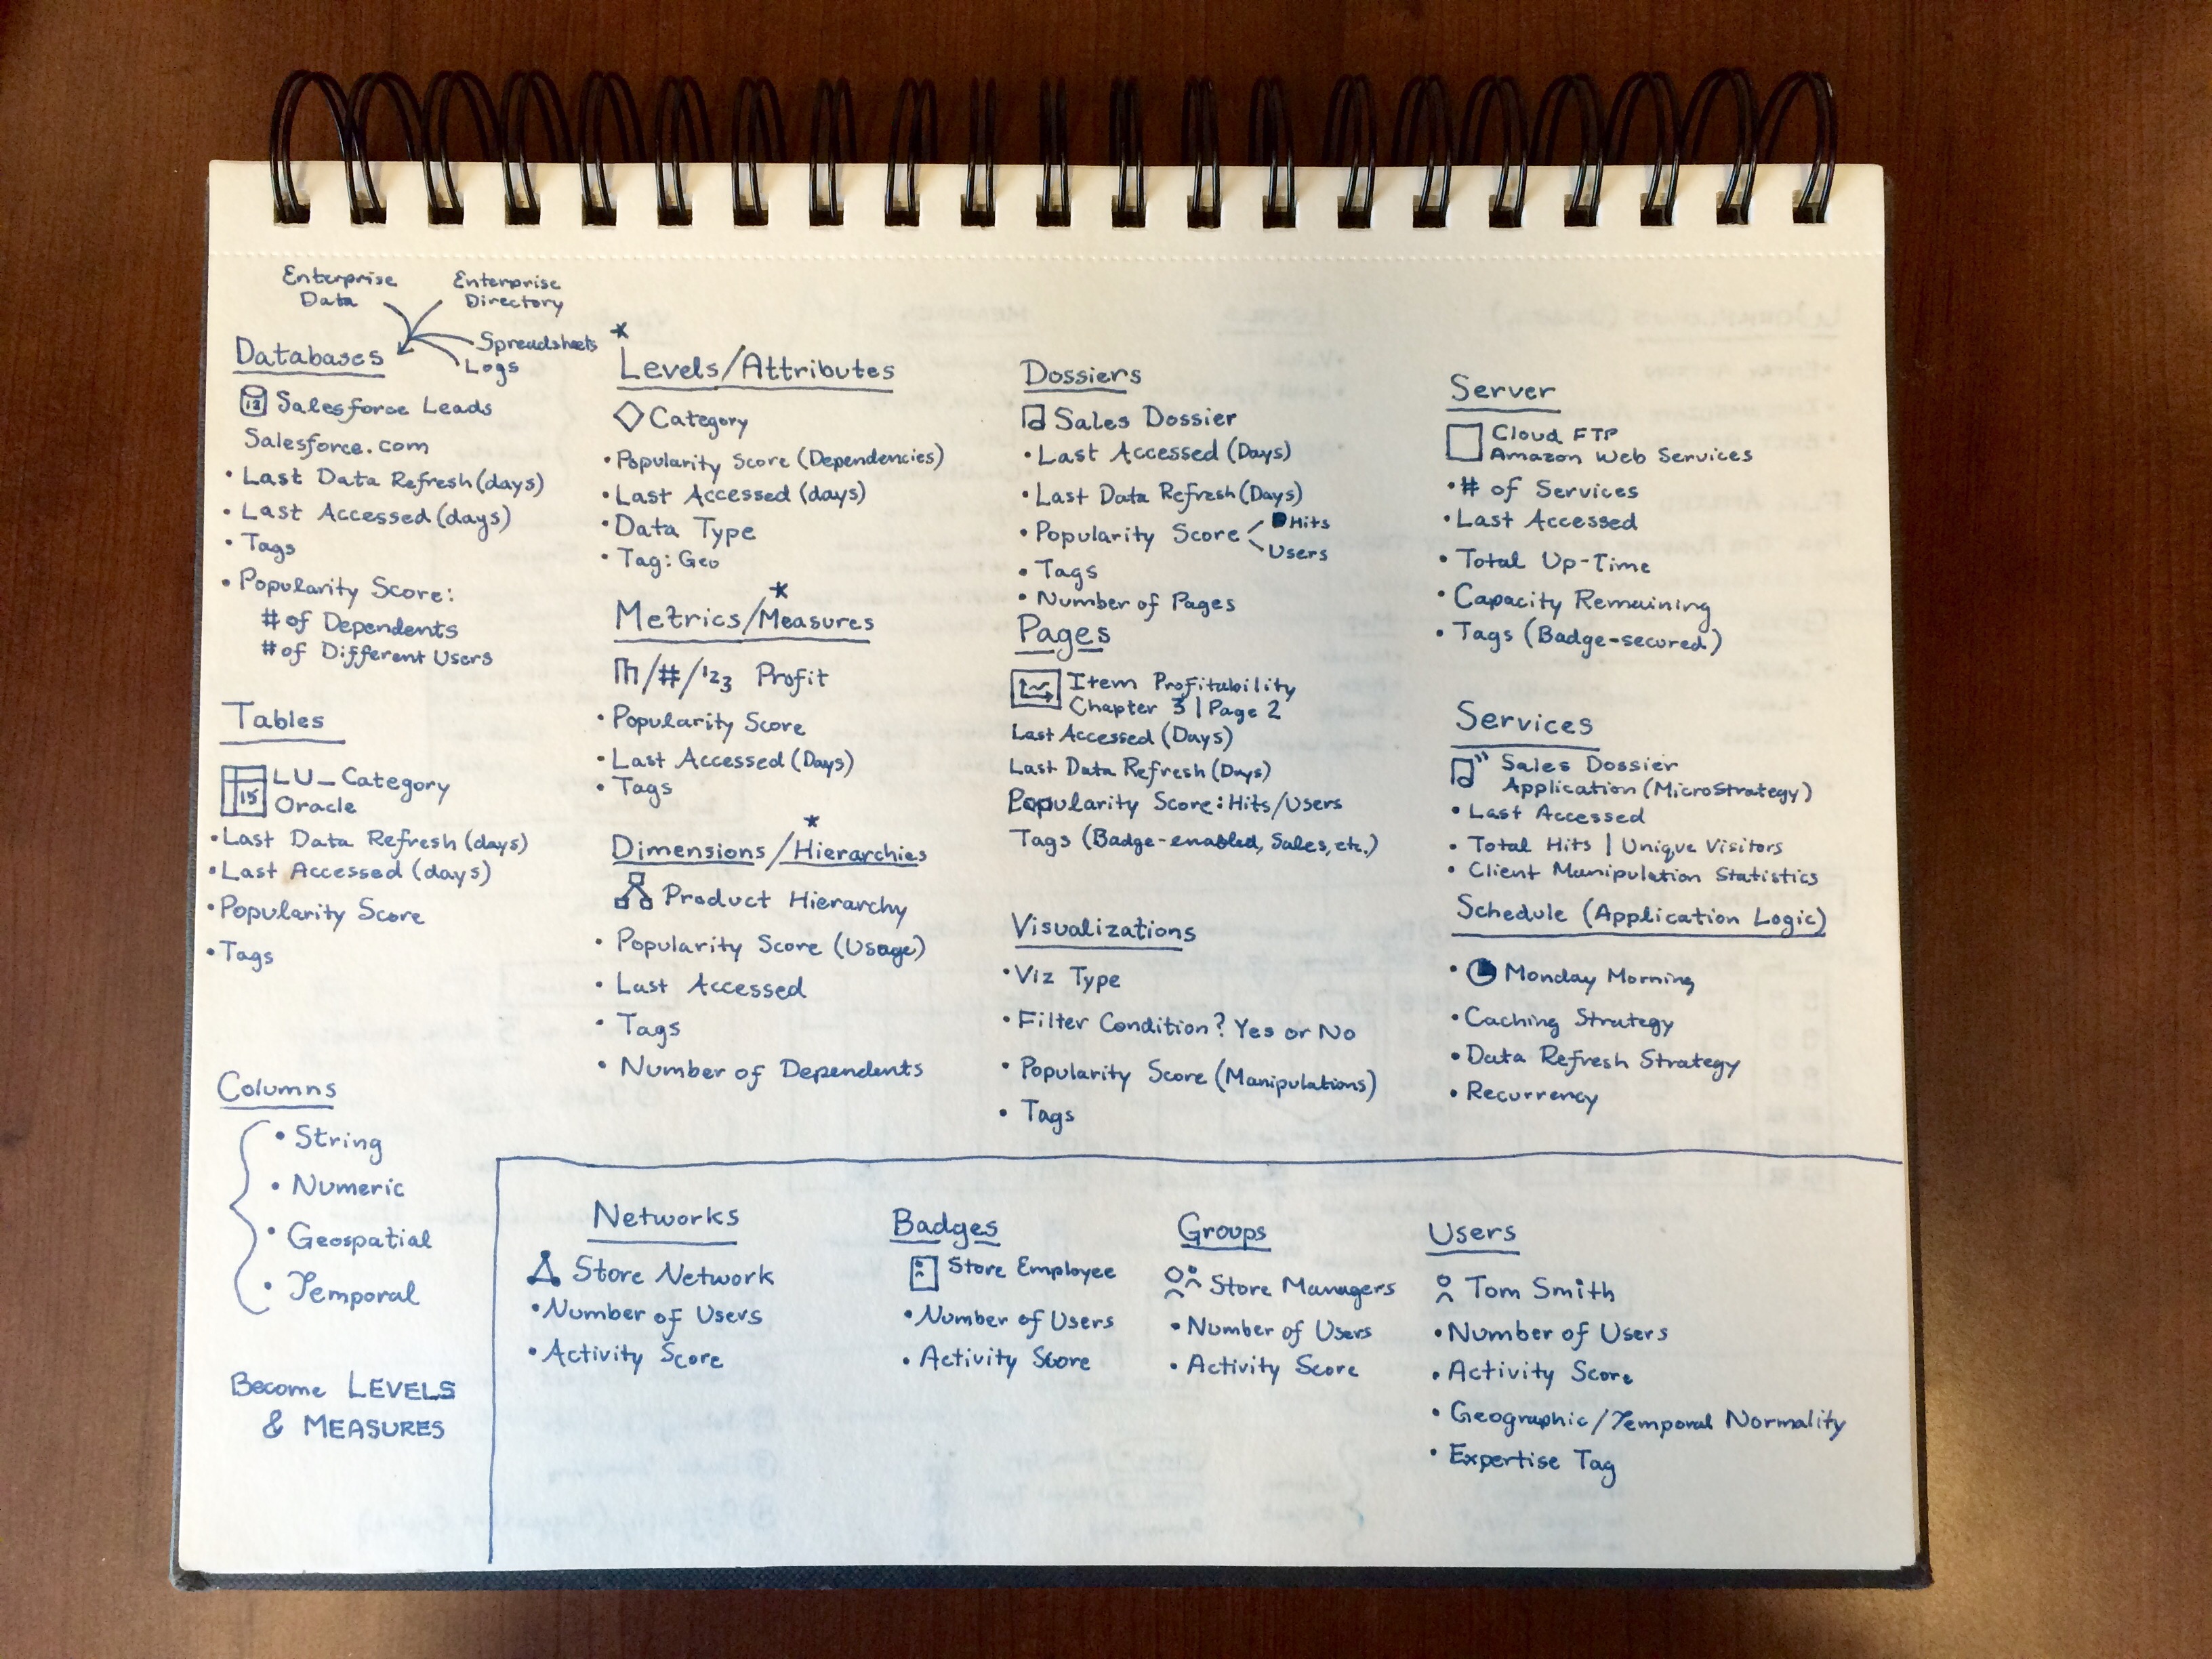 Enterprise Data
Enterprise Directory
Spreadsheets
Logs
Databases
12 Salesforce Leads
Salesforce.com
• Last Data Refresh (days)
• Last Accessed (days)
• Tags
• Popularity Score:
# of Dependents
# of Different Users
Tables
15 LU_Category
Oracle
• Last Data Refresh (days)
• Last Accessed (days)
• Popularity Score
• Tags
Columns
• String
• Numeric
• Geospatial
• Temporal
Become LEVELS
& MEASURES
*
Levels/Attributes
Category
• Popularity Score (Dependencies)
• Last Accessed (days)
• Data Type
• Tag: Geo
*
Metrics/Measures
/#/123 Profit
• Popularity Score
• Last Accessed (Days)
• Tags
*
Dimensions/Hierarchies
Product Hierarchy
• Popularity Score (Usage)
• Last Accessed
• Tags
• Number of Dependents
Dossiers
Sales Dossier
• Last Accessed (Days)
• Last Data Refresh (Days)
• Popularity Score
Hits
Users
• Tags
• Number of Pages
Pages
Item Profitability
Chapter 3 | Page 2
Last Accessed (Days)
Last Data Refresh (Days)
Popularity Score: Hits/Users
Tags (Badge-enabled, Sales, etc.)
Visualizations
• Viz Type
• Filter Condition? Yes or No
• Popularity Score (Manipulations)
• Tags
Server
Cloud FTP
Amazon Web Services
• # of Services
• Last Accessed
• Total Up-Time
• Capacity Remaining
• Tags (Badge-secured)
Services
Sales Dossier
Application (MicroStrategy)
• Last Accessed
• Total Hits | Unique Visitors
• Client Manipulation Statistics
Schedule (Application Logic)
• Monday Morning
• Caching Strategy
• Data Refresh Strategy
• Recurrency
Networks
Store Network
• Number of Users
• Activity Score
Badges
Store Employee
• Number of Users
• Activity Score
Groups
Store Managers
• Number of Users
• Activity Score
Users
Tom Smith
• Number of Users
• Activity Score
• Geographic/Temporal Normality
• Expertise Tag